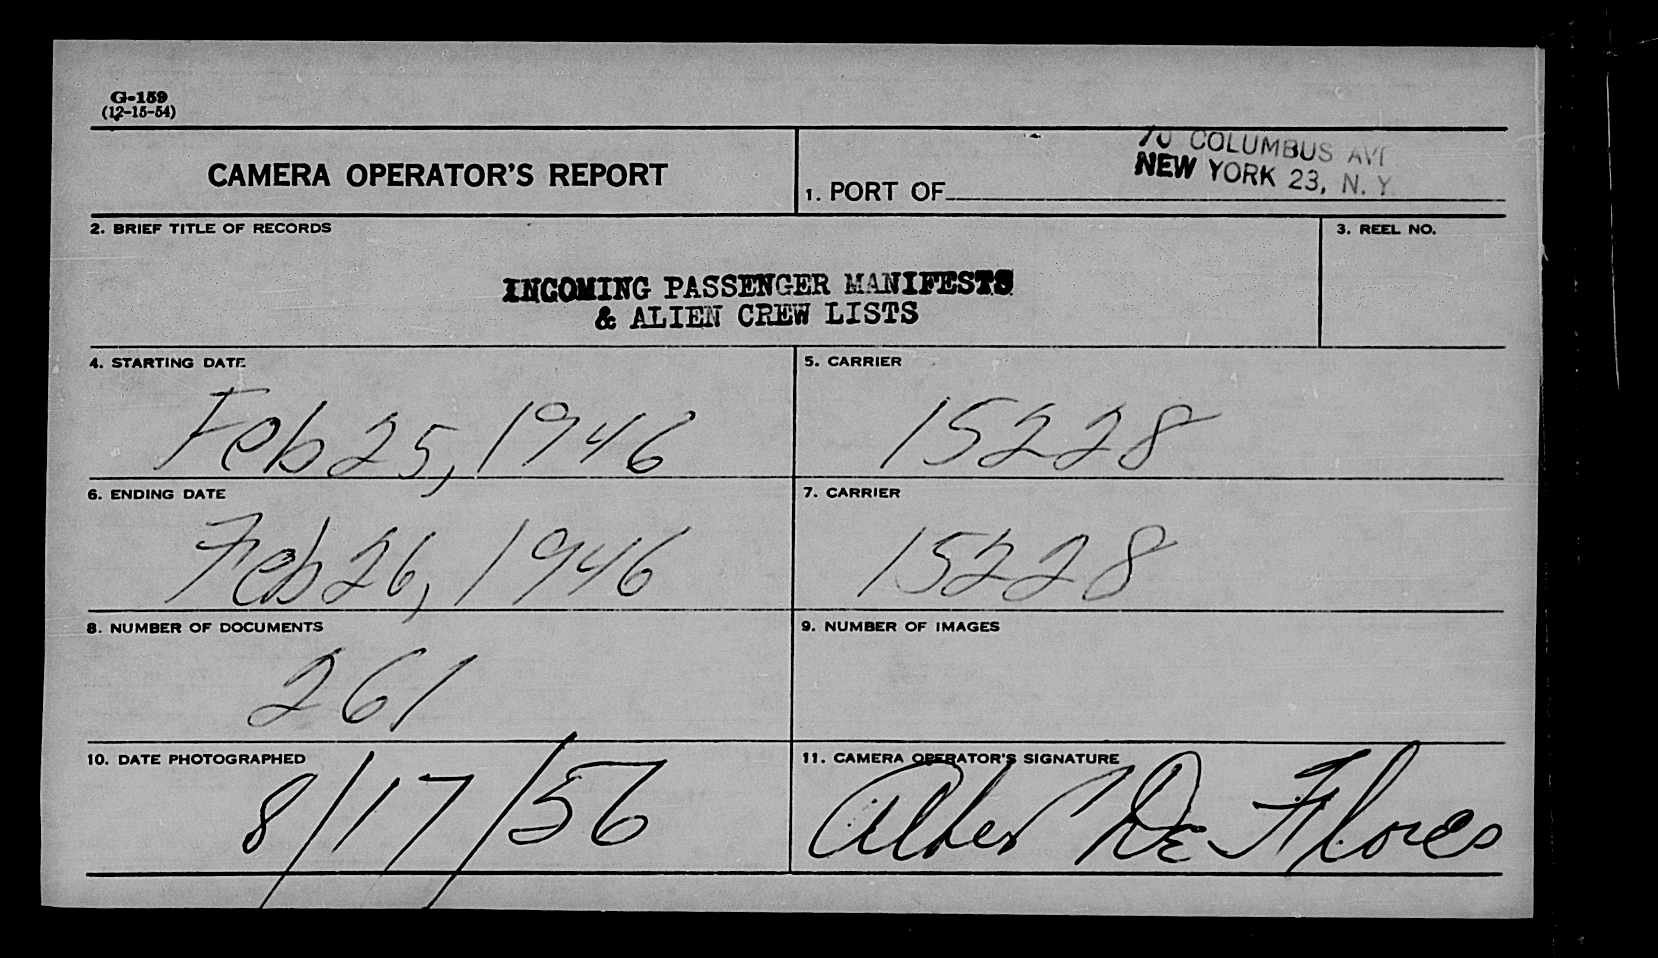 G-159
(12-15-54)
CAMERA OPERATOR'S REPORT
70 COLUMBUS AVE
NEW YORK 23, N. Y.
1. PORT OF
2. BRIEF TITLE OF RECORDS
3. REEL NO.
INCOMING PASSENGER MANIFESTS
& ALIEN CREW LISTS
4. STARTING DATE
5. CARRIER
Feb 25, 1946
15228
6. ENDING DATE
7. CARRIER
Feb 26, 1946
15228
8. NUMBER OF DOCUMENTS
9. NUMBER OF IMAGES
261
10. DATE PHOTOGRAPHED
11. CAMERA OPERATOR'S SIGNATURE
8/17/56
Albert De Flores